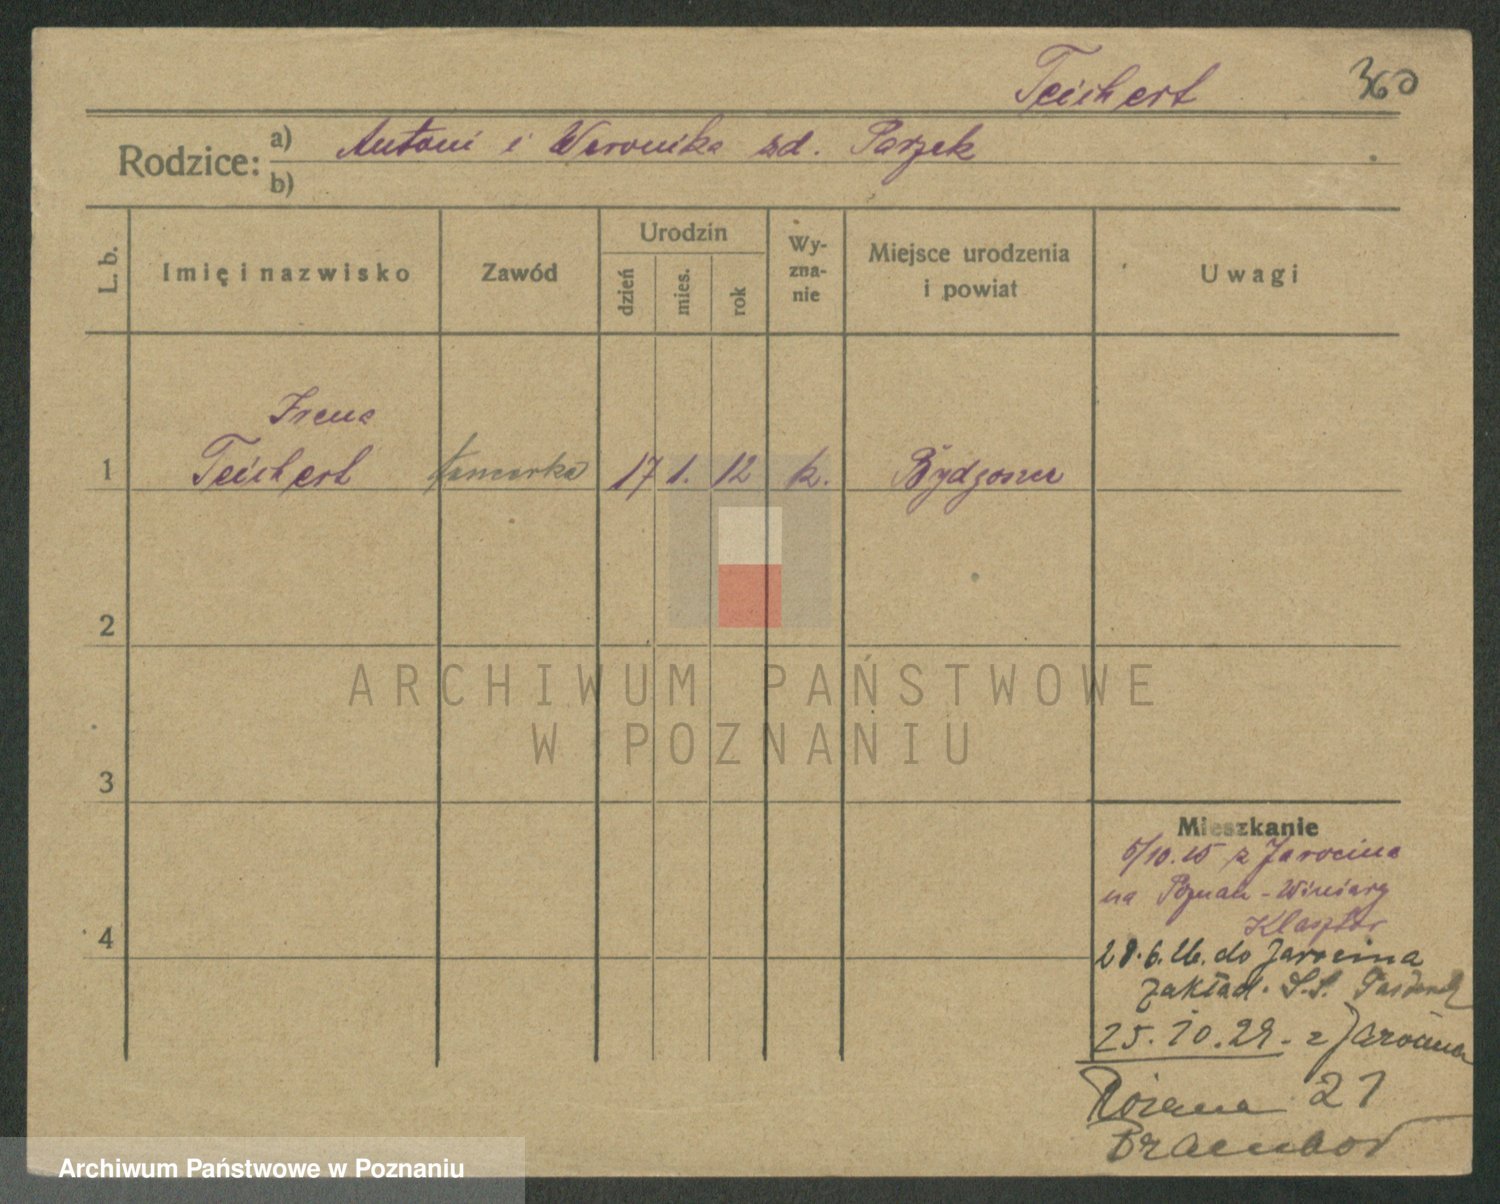 Teichert 360
Rodzice: a) Antoni i Weronika zd. Parzek
b)
L. b. Imię i nazwisko Zawód Urodzin dzień mies. rok Wyznanie Miejsce urodzenia i powiat Uwagi
Irena
1 Teichert 17 1. 12 k. Bydgoszcz
2
3
4
Mieszkanie
5/10.25 z Jarocina
na Poznań - Winiary
Klasztor
28.6.26. do Jarocina
zakład. S.S.
25.10.29. z Jarocina
Różana 21
ARCHIWUM PAŃSTWOWE
W POZNANIU
Archiwum Państwowe w Poznaniu